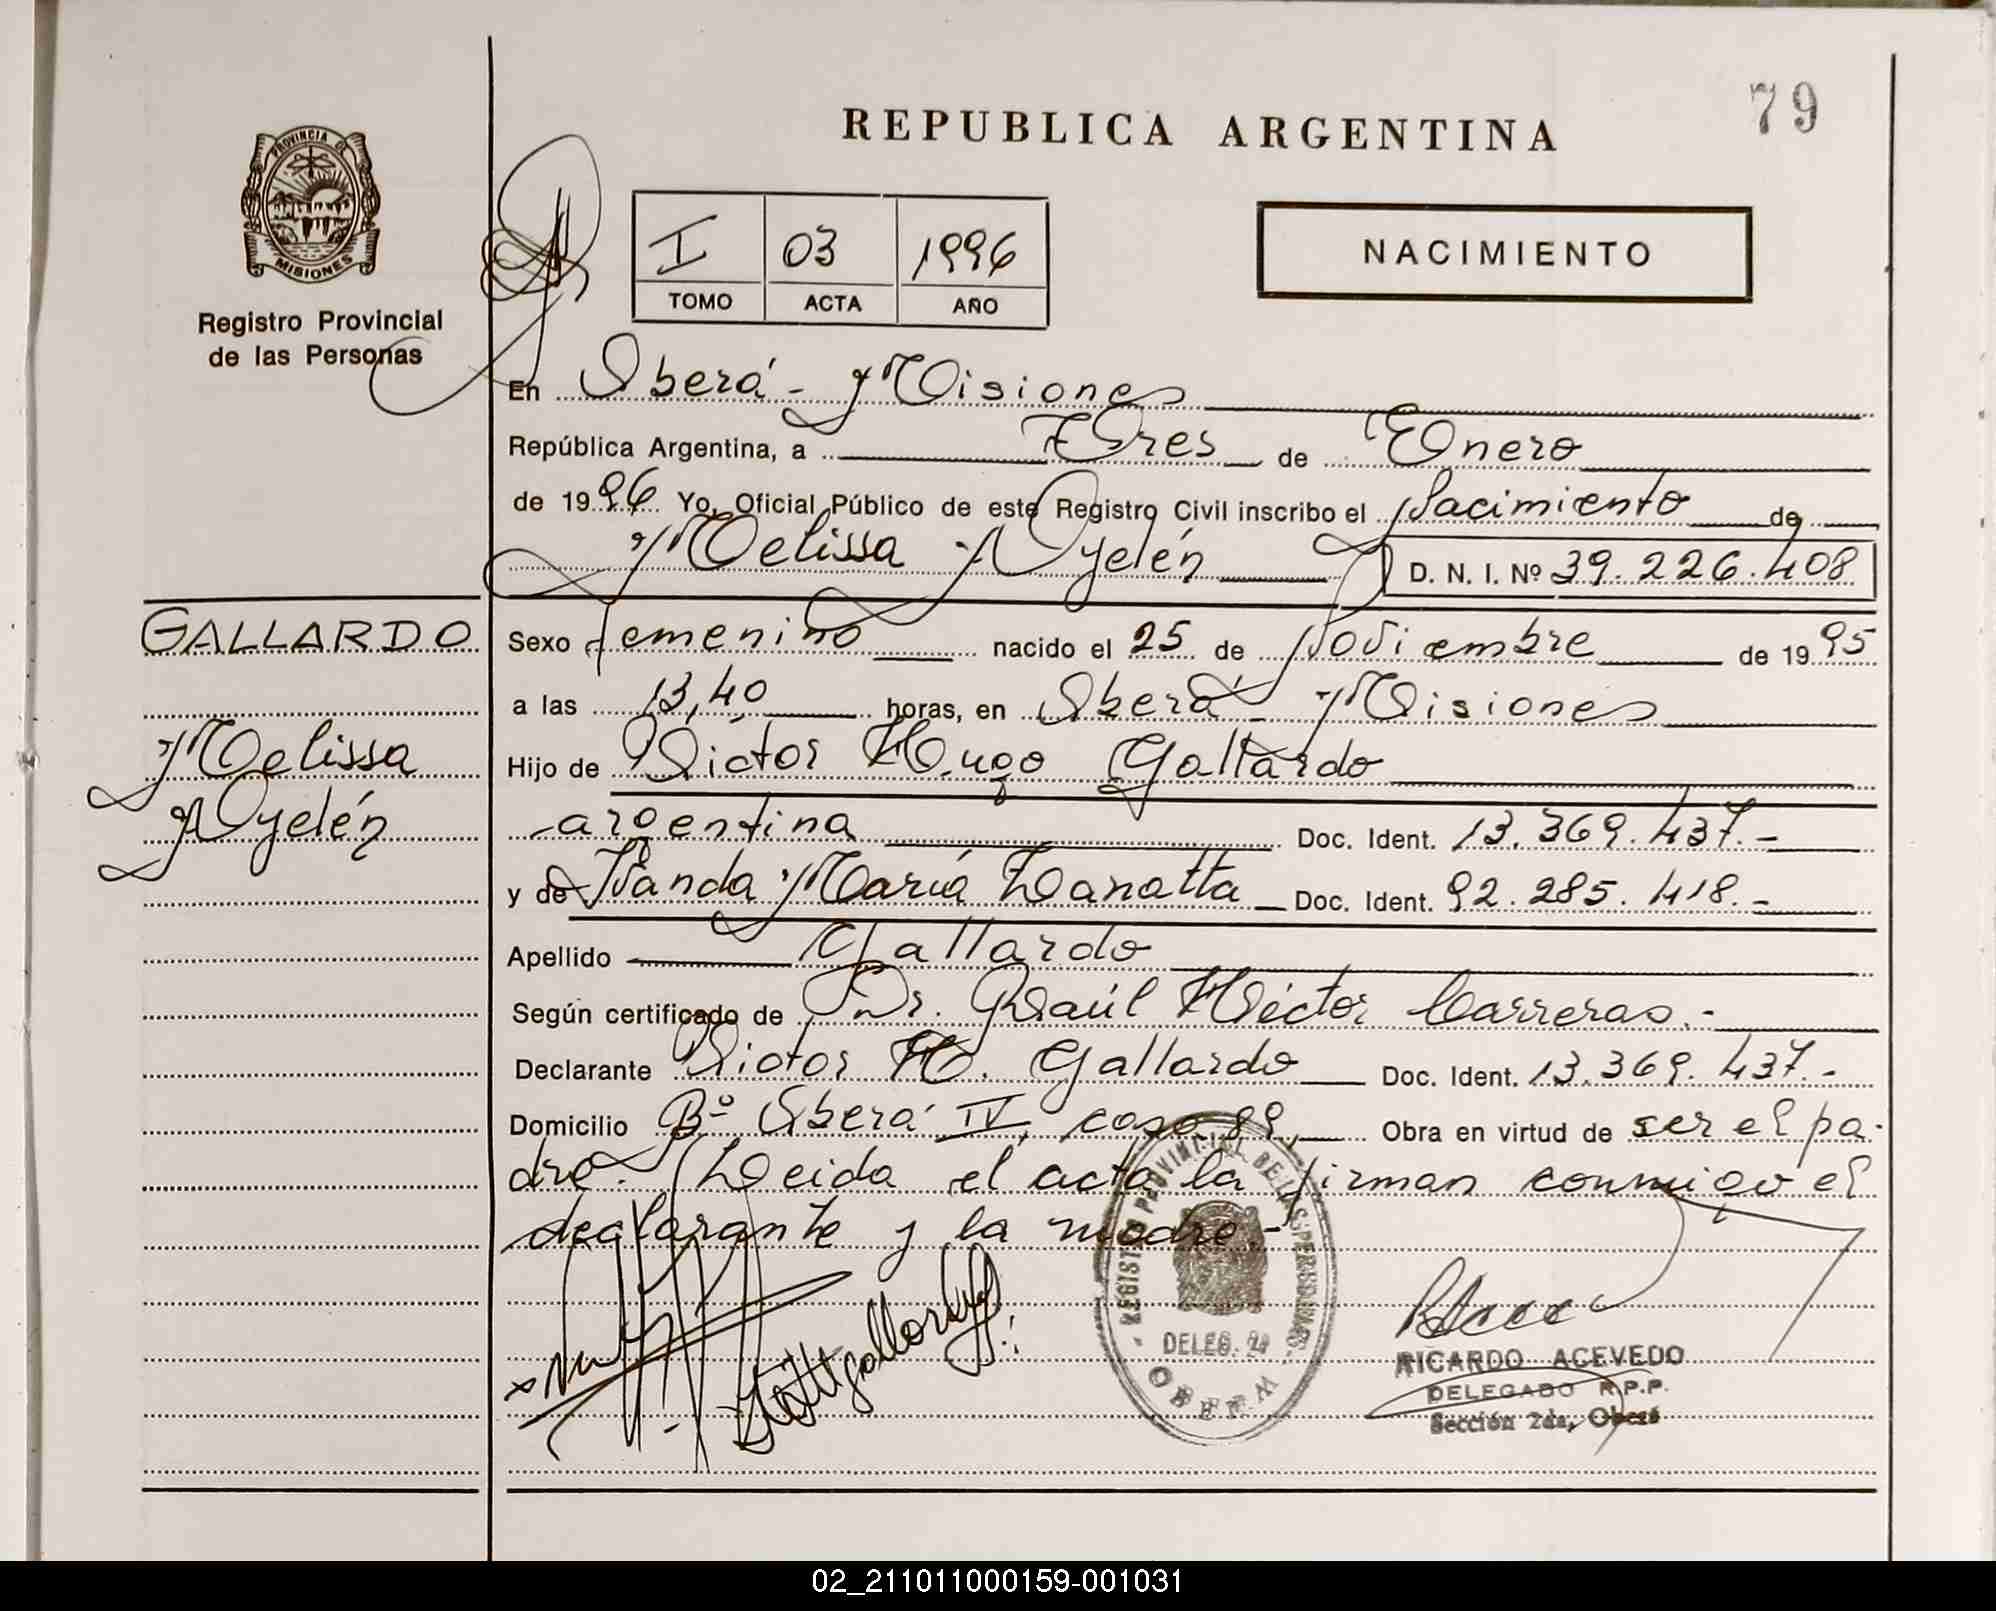 79
REPUBLICA ARGENTINA
PROVINCIA DE
MISIONES
Registro Provincial
de las Personas
I 03 1996
TOMO ACTA AÑO
NACIMIENTO
En Oberá - Misiones
República Argentina, a Tres de Enero
de 1996 Yo, Oficial Público de este Registro Civil inscribo el Nacimiento de
Melissa Ayelén D. N. I. Nº 39.226.408
GALLARDO
Melissa
Ayelén
Sexo femenino nacido el 25 de Noviembre de 1995
a las 13,40 horas, en Oberá - Misiones
Hijo de Víctor Hugo Gallardo
argentina Doc. Ident. 13.369.437.-
y de María Zanatta Doc. Ident. 92.285.418.-
Apellido Gallardo
Según certificado de Dr. Raúl Héctor Carreras.-
Declarante Victor H. Gallardo Doc. Ident. 13.369.437.-
Domicilio Bº Oberá IV, casa 89, Obra en virtud de ser el pa-
dre. Leida el acta la firman conmigo el
declarante y la madre.-
REGISTRO PROVINCIAL DE LAS PERSONAS
DELEG. 2ª
OBERA
RICARDO ACEVEDO
DELEGADO R.P.P.
Sección 2da, Oberá
02_211011000159-001031